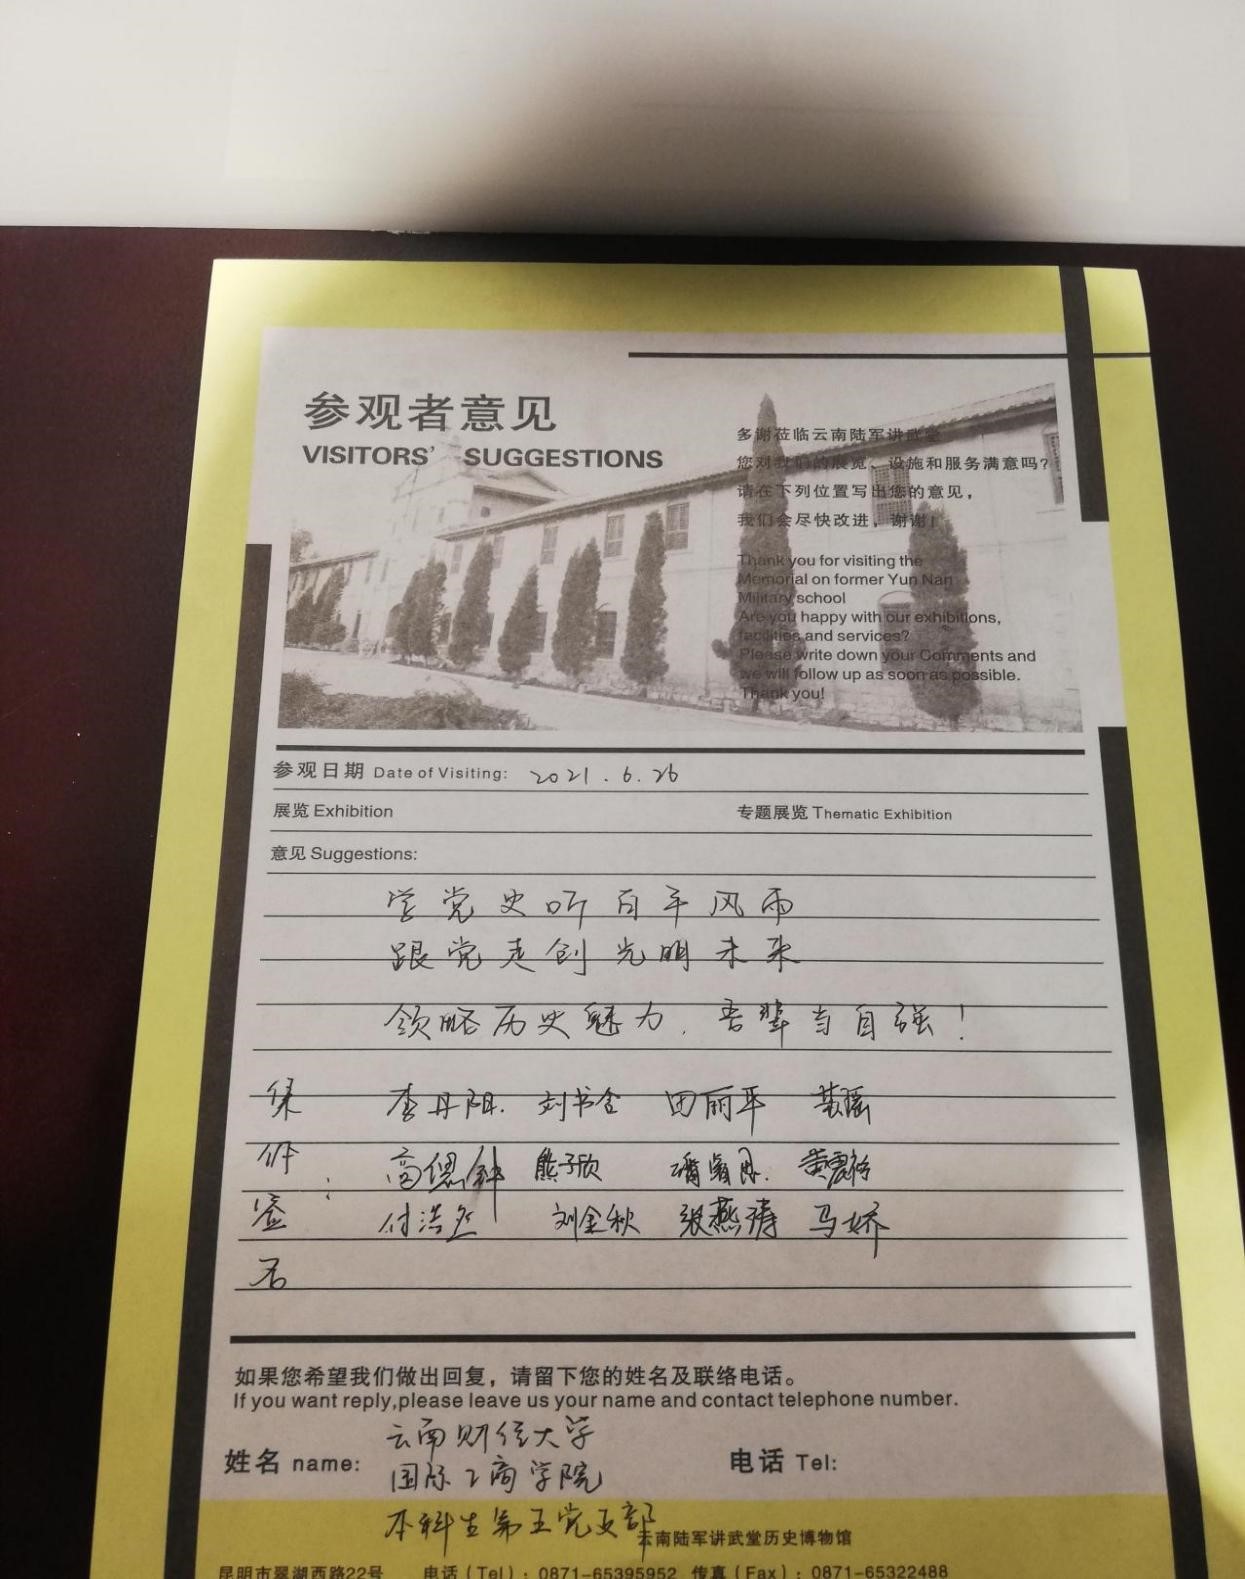 参观者意见
VISITORS' SUGGESTIONS
多谢莅临云南陆军讲武堂
您对我们的展览、设施和服务满意吗？
请在下列位置写出您的意见，
我们会尽快改进，谢谢！
Thank you for visiting the
Memorial on former Yun Nan
Military school
Are you happy with our exhibitions,
facilities and services?
Please write down your Comments and
we will follow up as soon as possible.
Thank you!
参观日期 Date of Visiting: 2021.6.26
展览 Exhibition 专题展览 Thematic Exhibition
意见 Suggestions:
学党史听百年风雨
跟党走创光明未来
领略历史魅力，吾辈当自强！
李丹阳 刘书含 田丽平
熊子欣
签： 付浩然 刘金秋 张燕涛 马娇
名
如果您希望我们做出回复，请留下您的姓名及联络电话。
If you want reply,please leave us your name and contact telephone number.
云南财经大学
姓名 name: 国际工商学院 电话 Tel:
本科生第五党支部
云南陆军讲武堂历史博物馆
昆明市翠湖西路22号 电话（Tel）：0871-65395952 传真（Fax）：0871-65322488